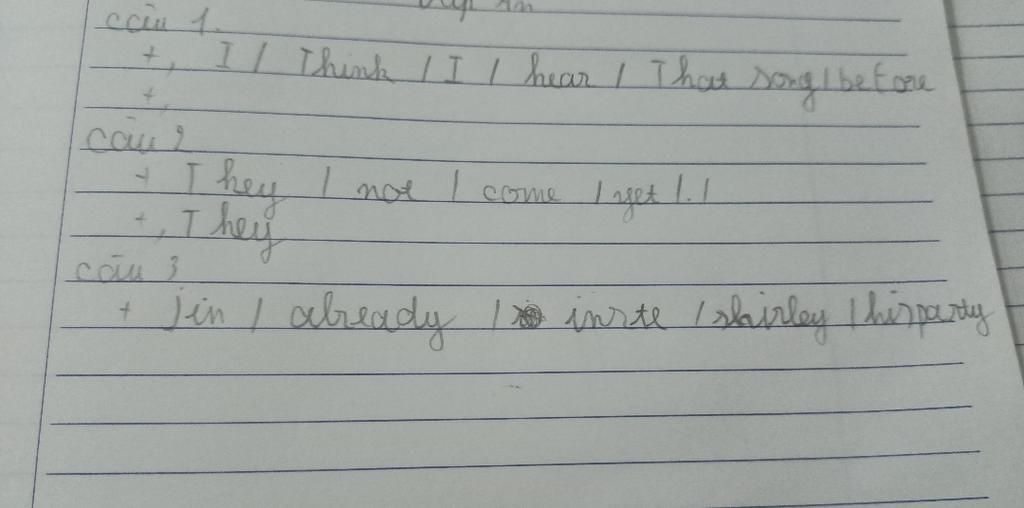 câu 1.
+, I / Think / I / hear / That song / before
+,
câu 2
+ They / not / come / yet / . /
+, They
câu 3
+ jin / already / invte / shirley / his party